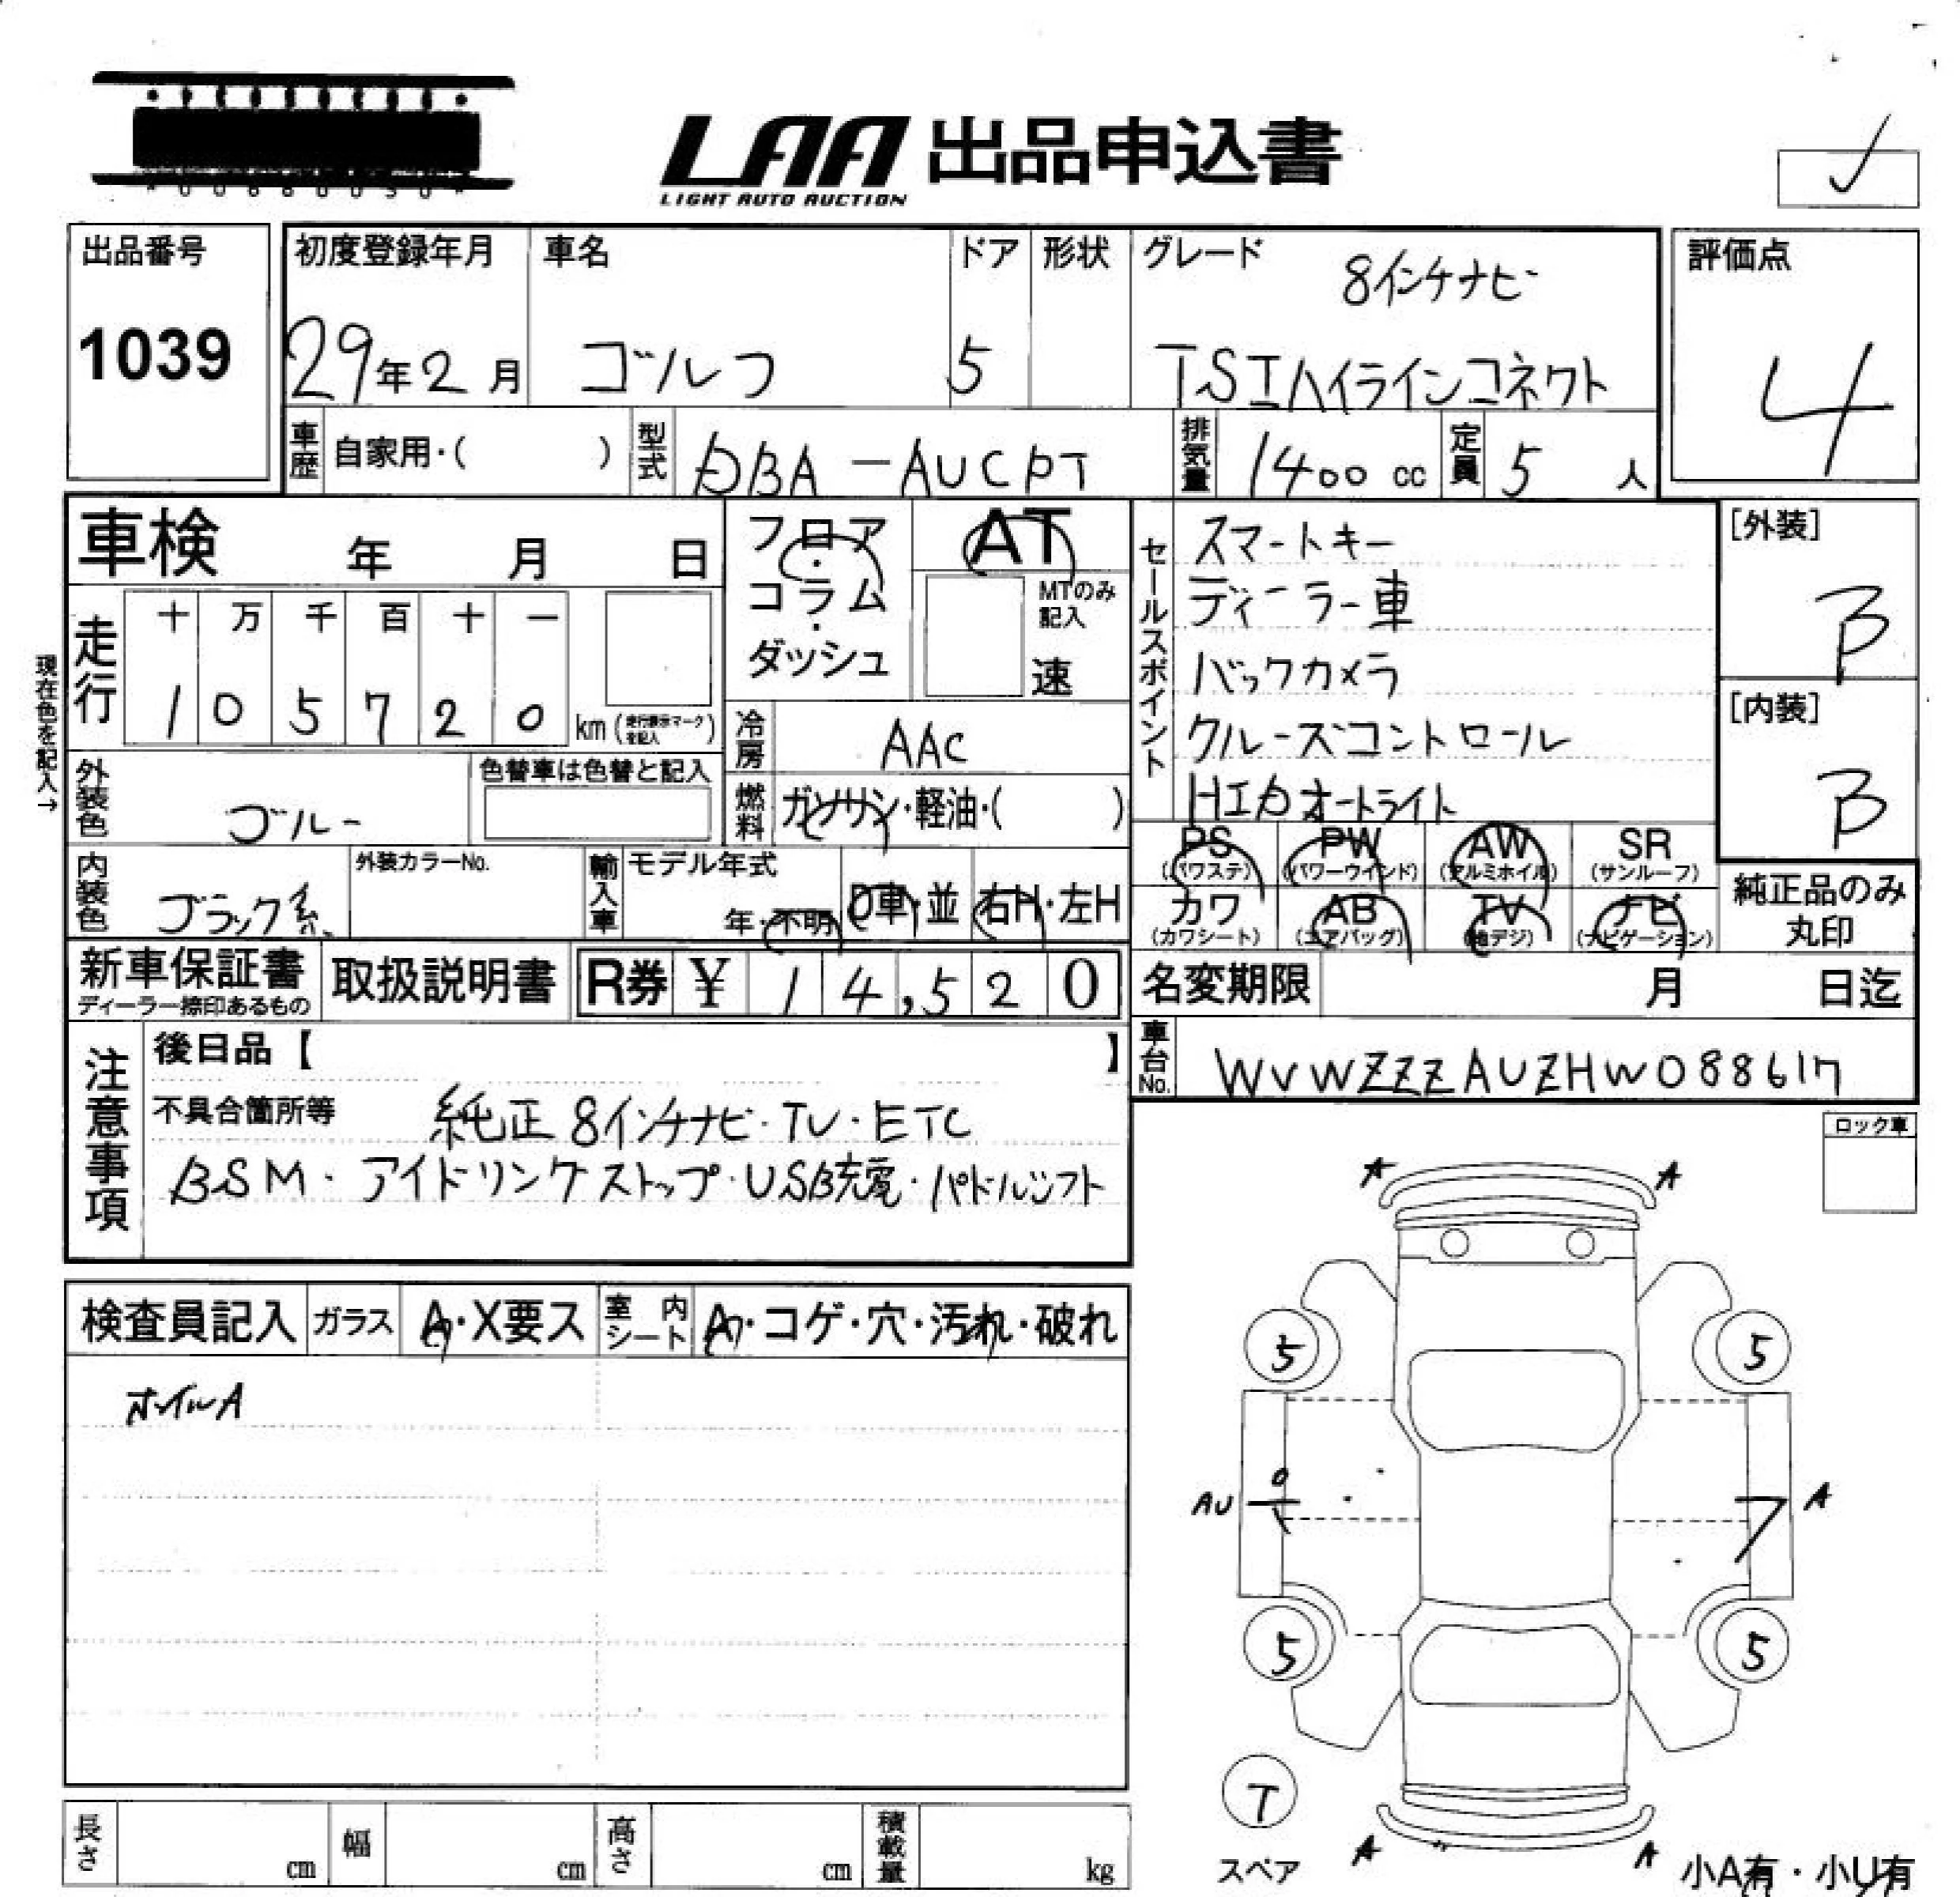 LAA 出品申込書
LIGHT AUTO AUCTION
出品番号
1039
初度登録年月
29年2月
車名
ゴルフ
ドア
5
形状
グレード
8インチナビ
TSIハイラインコネクト
評価点
4
車歴 自家用・( )
型式 DBA-AUCPT
排気量 1400 cc
定員 5 人
車検 年 月 日
フロア・コラム・ダッシュ
AT
MTのみ記入
速
現在色を記入→
走行
十 万 千 百 十 一
1 0 5 7 2 0 km (走行表示マーク を記入)
冷房 AAC
燃料 ガソリン・軽油・( )
外装色
色替車は色替と記入
内装色 ブラック系
外装カラーNo.
輸入車
モデル年式
年・不明
D車・並
右H・左H
セールスポイント
スマートキー
ディーラー車
バックカメラ
クルーズコントロール
HIDオートライト
[外装]
B
[内装]
B
PS (パワステ)
PW (パワーウインド)
AW (アルミホイル)
SR (サンルーフ)
カワ (カワシート)
AB (エアバッグ)
TV (地デジ)
ナビ (ナビゲーション)
純正品のみ
丸印
新車保証書
ディーラー捺印あるもの
取扱説明書
R券 ¥ 14,520
名変期限 月 日迄
車台No. WVWZZZAUZHW088617
注意事項
後日品【 】
不具合箇所等 純正8インチナビ・TV・ETC
BSM・アイドリングストップ・USB充電・パドルシフト
ロック車
検査員記入
ガラス A・X要ス
室内シート A・コゲ・穴・汚れ・破れ
ホイルA
A A
5 5
AU A
5 5
T
スペア
A A
小A有・小U有
長さ cm
幅 cm
高さ cm
積載量 kg